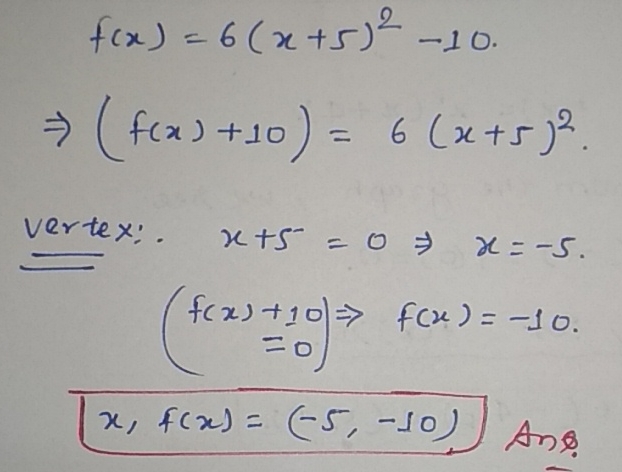 f(x) = 6(x+5)² -10.
⇒ (f(x)+10) = 6(x+5)².
vertex:. x+5 = 0 ⇒ x=-5.
(f(x)+10 = 0) ⇒ f(x) = -10.
x, f(x) = (-5, -10) Ans.